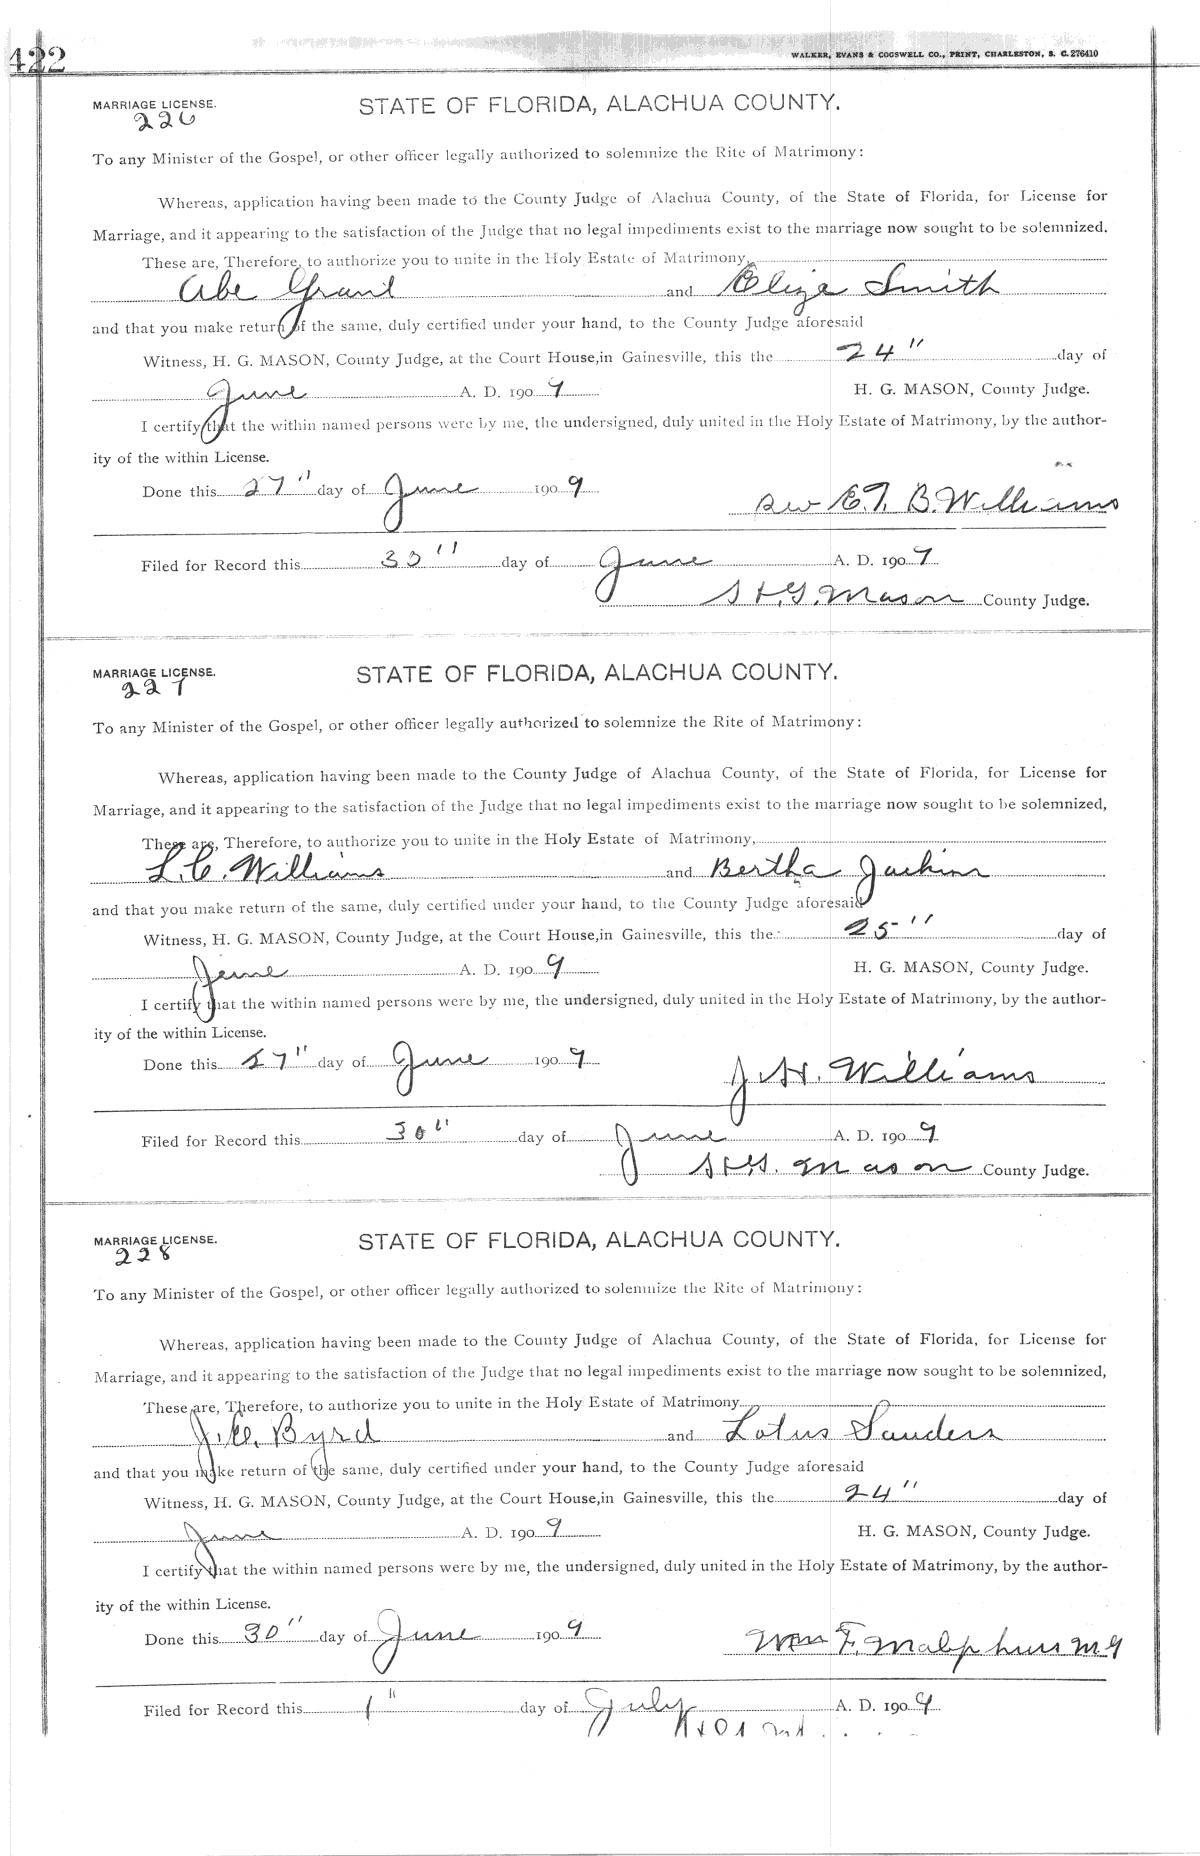 422
WALKER, EVANS & COGSWELL CO., PRINT, CHARLESTON, S. C. 276410
MARRIAGE LICENSE. STATE OF FLORIDA, ALACHUA COUNTY.
226
To any Minister of the Gospel, or other officer legally authorized to solemnize the Rite of Matrimony:
Whereas, application having been made to the County Judge of Alachua County, of the State of Florida, for License for
Marriage, and it appearing to the satisfaction of the Judge that no legal impediments exist to the marriage now sought to be solemnized.
These are, Therefore, to authorize you to unite in the Holy Estate of Matrimony,
Abe Grant and Eliza Smith
and that you make return of the same, duly certified under your hand, to the County Judge aforesaid
Witness, H. G. MASON, County Judge, at the Court House, in Gainesville, this the 24" day of
June A. D. 1909 H. G. MASON, County Judge.
I certify that the within named persons were by me, the undersigned, duly united in the Holy Estate of Matrimony, by the author-
ity of the within License.
Done this 27" day of June 1909
Rev E. T. B. Williams
Filed for Record this 30" day of June A. D. 1909
H. G. Mason County Judge.
MARRIAGE LICENSE. STATE OF FLORIDA, ALACHUA COUNTY.
227
To any Minister of the Gospel, or other officer legally authorized to solemnize the Rite of Matrimony:
Whereas, application having been made to the County Judge of Alachua County, of the State of Florida, for License for
Marriage, and it appearing to the satisfaction of the Judge that no legal impediments exist to the marriage now sought to be solemnized,
These are, Therefore, to authorize you to unite in the Holy Estate of Matrimony,
L. C. Williams and Bertha
and that you make return of the same, duly certified under your hand, to the County Judge aforesaid
Witness, H. G. MASON, County Judge, at the Court House, in Gainesville, this the 25" day of
June A. D. 1909 H. G. MASON, County Judge.
I certify that the within named persons were by me, the undersigned, duly united in the Holy Estate of Matrimony, by the author-
ity of the within License.
Done this 27" day of June 1909
J. H. Williams
Filed for Record this 30" day of June A. D. 1909
H. G. Mason County Judge.
MARRIAGE LICENSE. STATE OF FLORIDA, ALACHUA COUNTY.
228
To any Minister of the Gospel, or other officer legally authorized to solemnize the Rite of Matrimony:
Whereas, application having been made to the County Judge of Alachua County, of the State of Florida, for License for
Marriage, and it appearing to the satisfaction of the Judge that no legal impediments exist to the marriage now sought to be solemnized,
These are, Therefore, to authorize you to unite in the Holy Estate of Matrimony
Byrd and Lotus Sanders
and that you make return of the same, duly certified under your hand, to the County Judge aforesaid
Witness, H. G. MASON, County Judge, at the Court House, in Gainesville, this the 24" day of
June A. D. 1909 H. G. MASON, County Judge.
I certify that the within named persons were by me, the undersigned, duly united in the Holy Estate of Matrimony, by the author-
ity of the within License.
Done this 30" day of June 1909
Wm F. Malphurs
Filed for Record this 1" day of July A. D. 1909